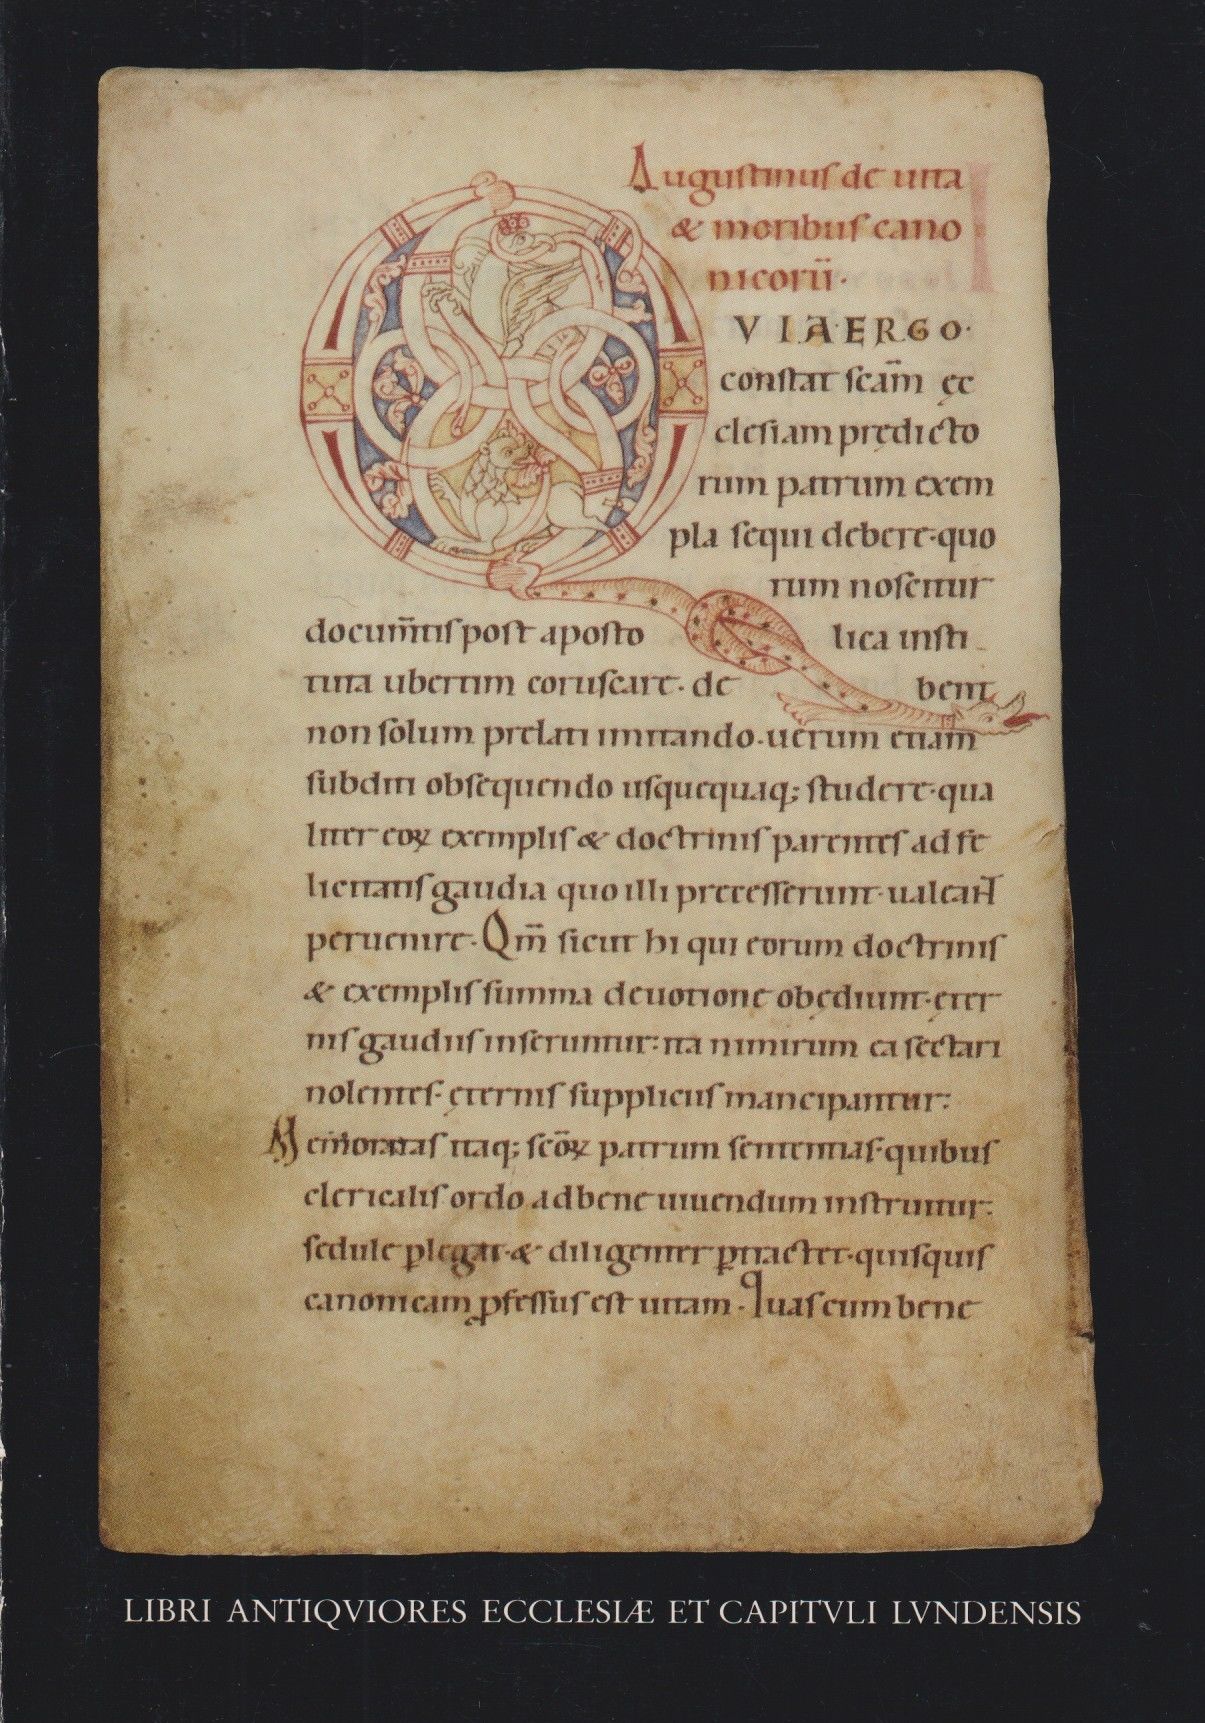 Augustinus de uita
& moribus cano
nicorū·
QVIA·ERGO·
constat scām ęc
clesiam predicto
rum patrum exem
pla sequi debere·quo
rum noscitur
documtis post aposto lica insti
tuta ubertim coruscare·de bent
non solum prelati imitando·uerum etiam
subditi obsequendo usquequaq; studere·qua
liter eoꝝ exemplis & doctrinis parentes ad fe
licitatis gaudia quo illi precesserunt·ualeant
peruenire·Qm̄ sicut hi qui eorum doctrinis
& exemplis summa deuotione obędiunt·ęter
nis gaudiis inseruntur: ita nimirum ea sectari
nolentes·ęternis suppliciis mancipantur:
Memoratas itaq; scōꝝ patrum sententias·quibus
clericalis ordo ad bene uiuendum instruitur:
sedule ꝑlegat·& diligenter ꝑtractet·quisquis
canonicam ꝓfessus est uitam·Quas cum bene
LIBRI ANTIQVIORES ECCLESIÆ ET CAPITVLI LVNDENSIS